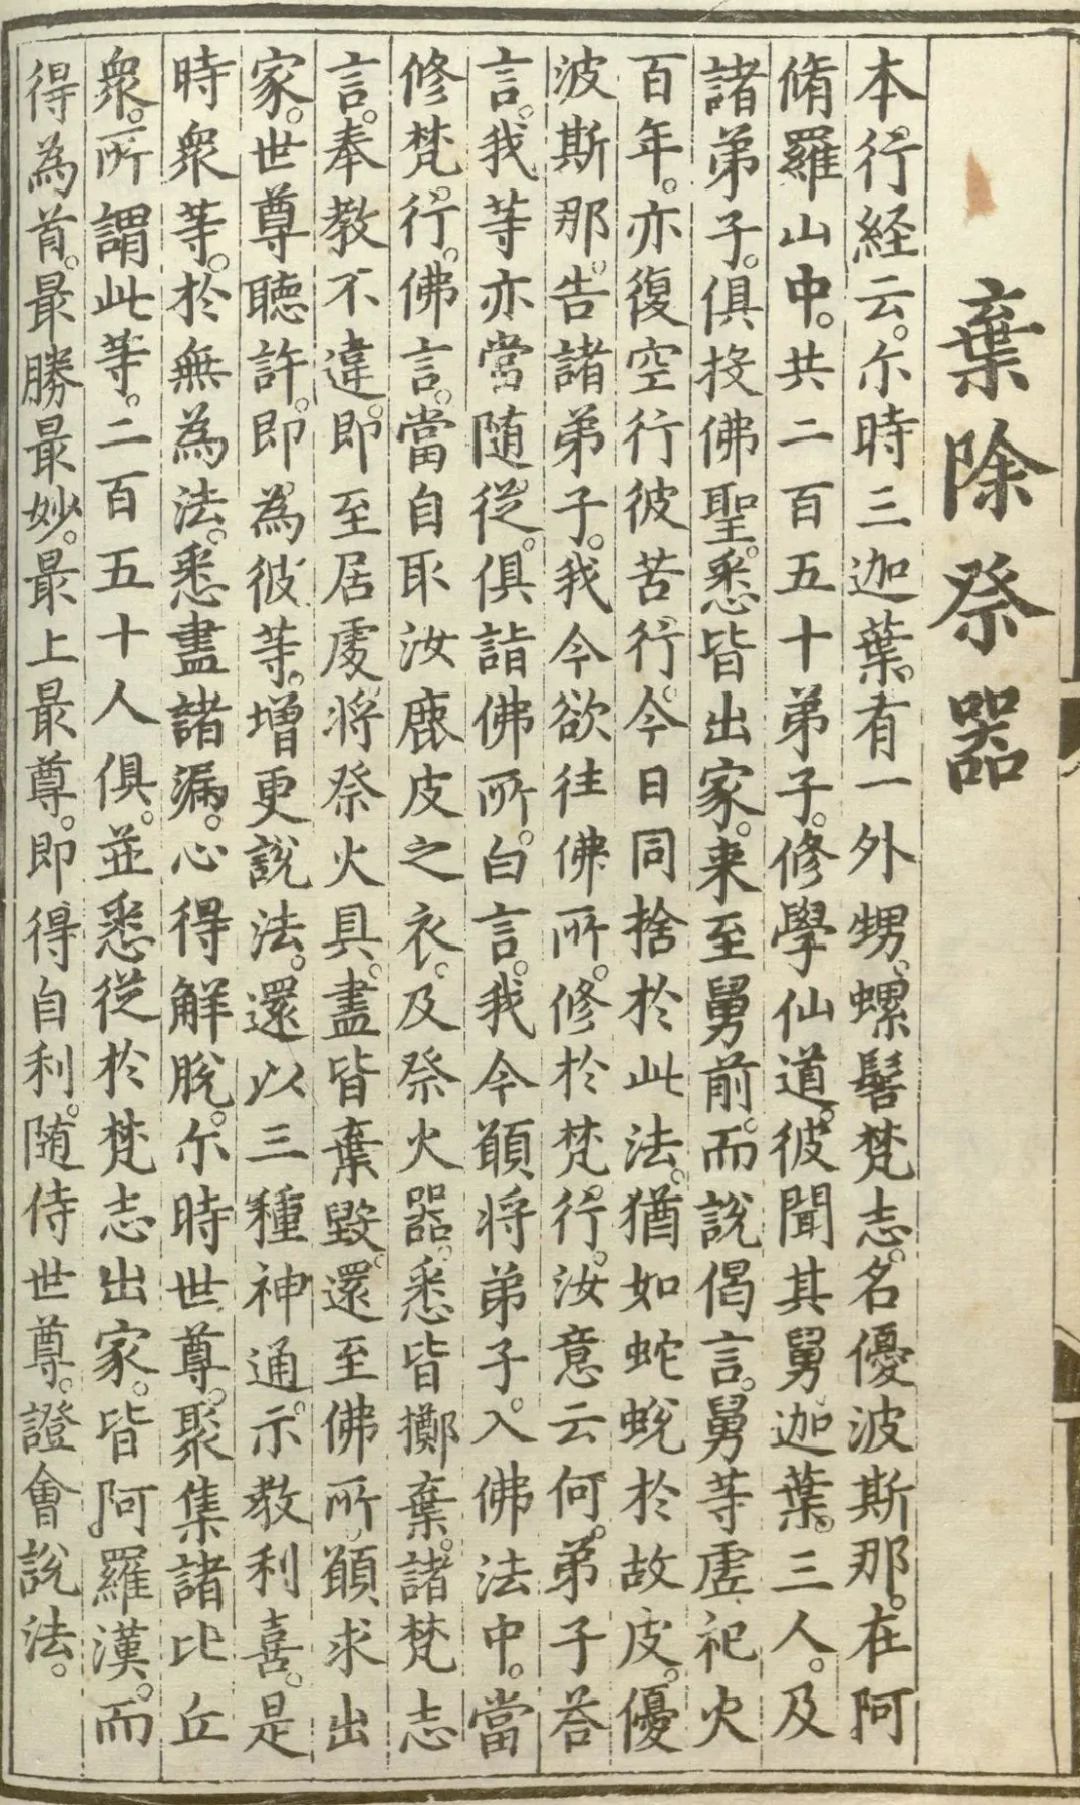 棄除祭器
本行経云。尒時三迦葉。有一外甥、螺髻梵志。名優波斯那。在阿
脩羅山中。共二百五十弟子。修學仙道。彼聞其舅迦葉。三人。及
諸弟子。俱投佛聖。悉皆出家。来至舅前。而說偈言。舅等虛祀火
百年。亦復空行彼苦行。今日同捨於此法。猶如蛇蛻於故皮。優
波斯那。告諸弟子。我今欲往佛所。修於梵行。汝意云何。弟子荅
言。我等亦當随從。俱詣佛所。白言。我今願将弟子。入佛法中。當
修梵行。佛言。當自取汝鹿皮之衣。及祭火器。悉皆擲棄。諸梵志
言。奉教不違。即至居處将祭火具。盡皆棄毀。還至佛所願求出
家。世尊聽許。即為彼等。增更說法。還以三種神通。示教利喜。是
時衆等。於無為法。悉盡諸漏。心得解脫。尒時世尊。聚集諸比丘
衆。所謂此等。二百五十人俱。並悉從於梵志出家。皆阿羅漢。而
得為首。最勝最妙。最上最尊。即得自利。随侍世尊。證會說法。